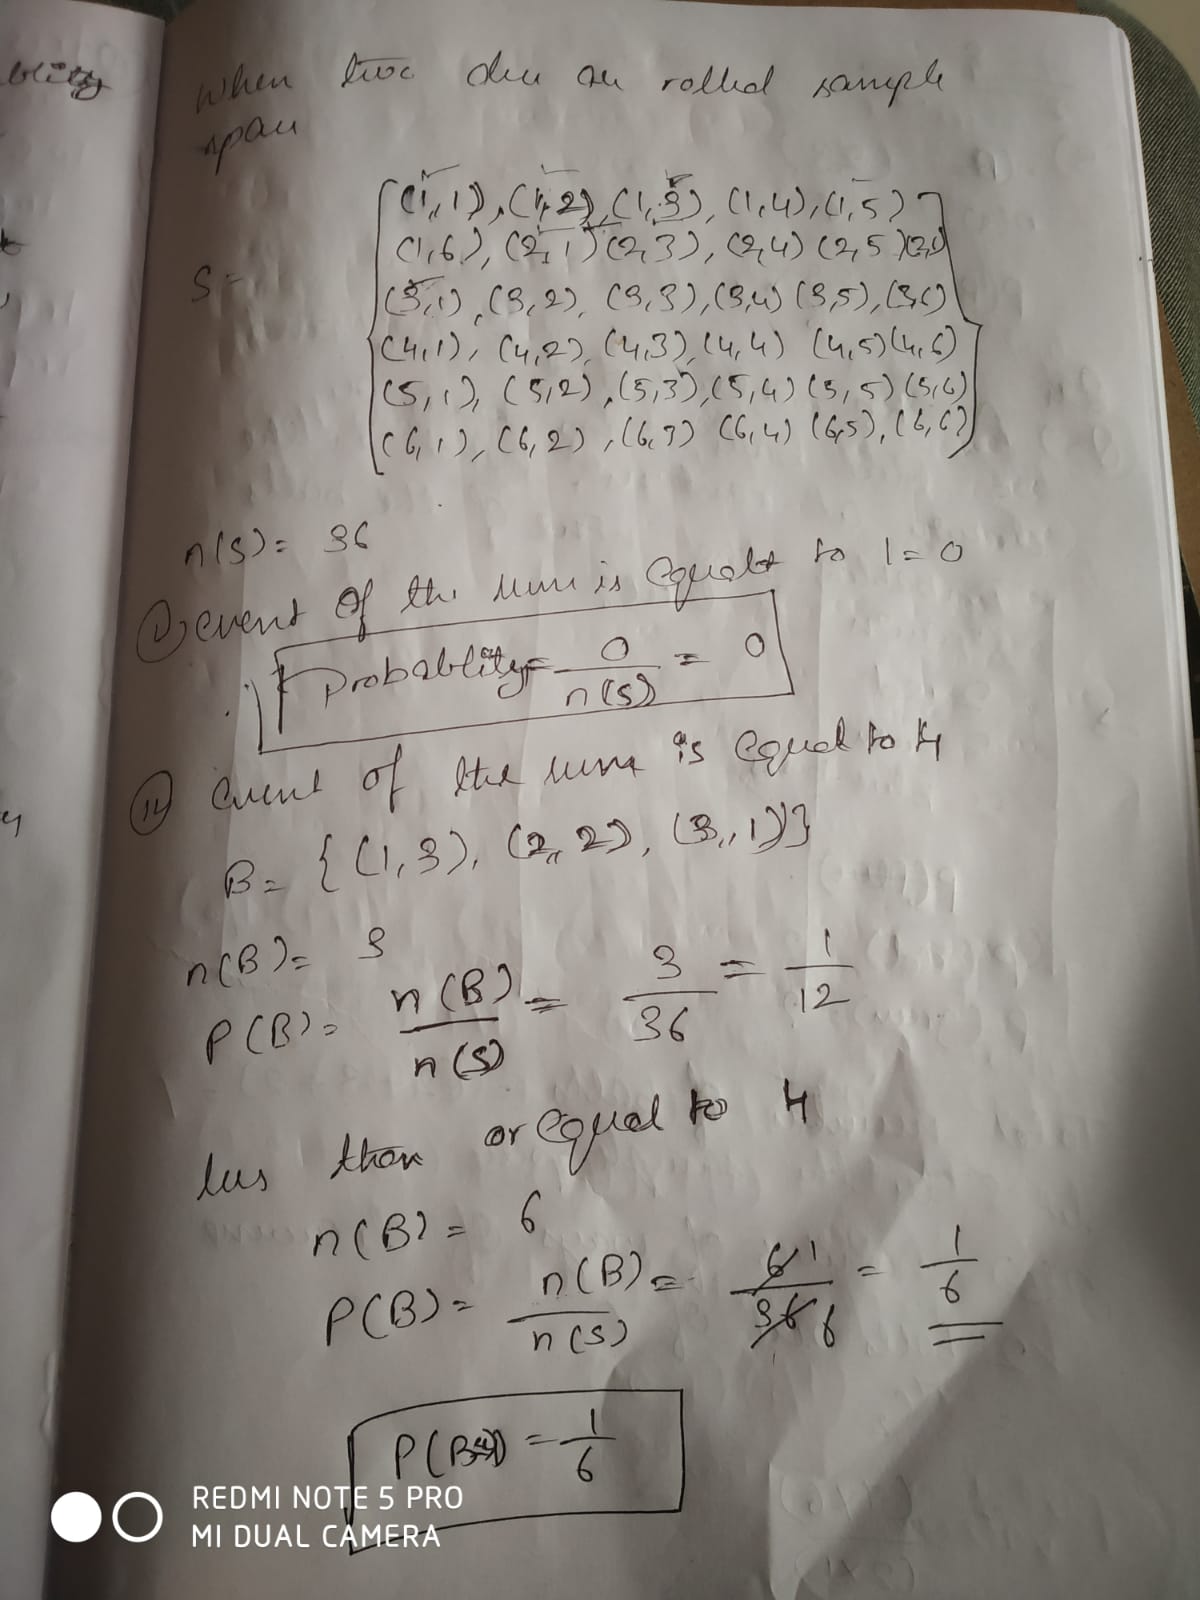 blity
When two dice are rolled sample
space
S =
{(1,1), (1,2), (1,3), (1,4), (1,5)
(1,6), (2,1) (2,3), (2,4) (2,5)
(3,1), (3,2), (3,3), (3,4) (3,5), (3,6)
(4,1), (4,2), (4,3), (4,4) (4,5) (4,6)
(5,1), (5,2), (5,3), (5,4) (5,5) (5,6)
(6,1), (6,2), (6,3) (6,4) (6,5), (6,6)}
n(S) = 36
event of the sum is equal to 1 = 0
Probablity = 0/n(S) = 0
(ii) event of the sum is equal to 4
B = {(1,3), (2,2), (3,1)}
n(B) = 3
P(B) = n(B)/n(S) = 3/36 = 1/12
less than or equal to 4
n(B) = 6
P(B) = n(B)/n(S) = 6 1/36 6 = 1/6
= 1/6
REDMI NOTE 5 PRO
MI DUAL CAMERA